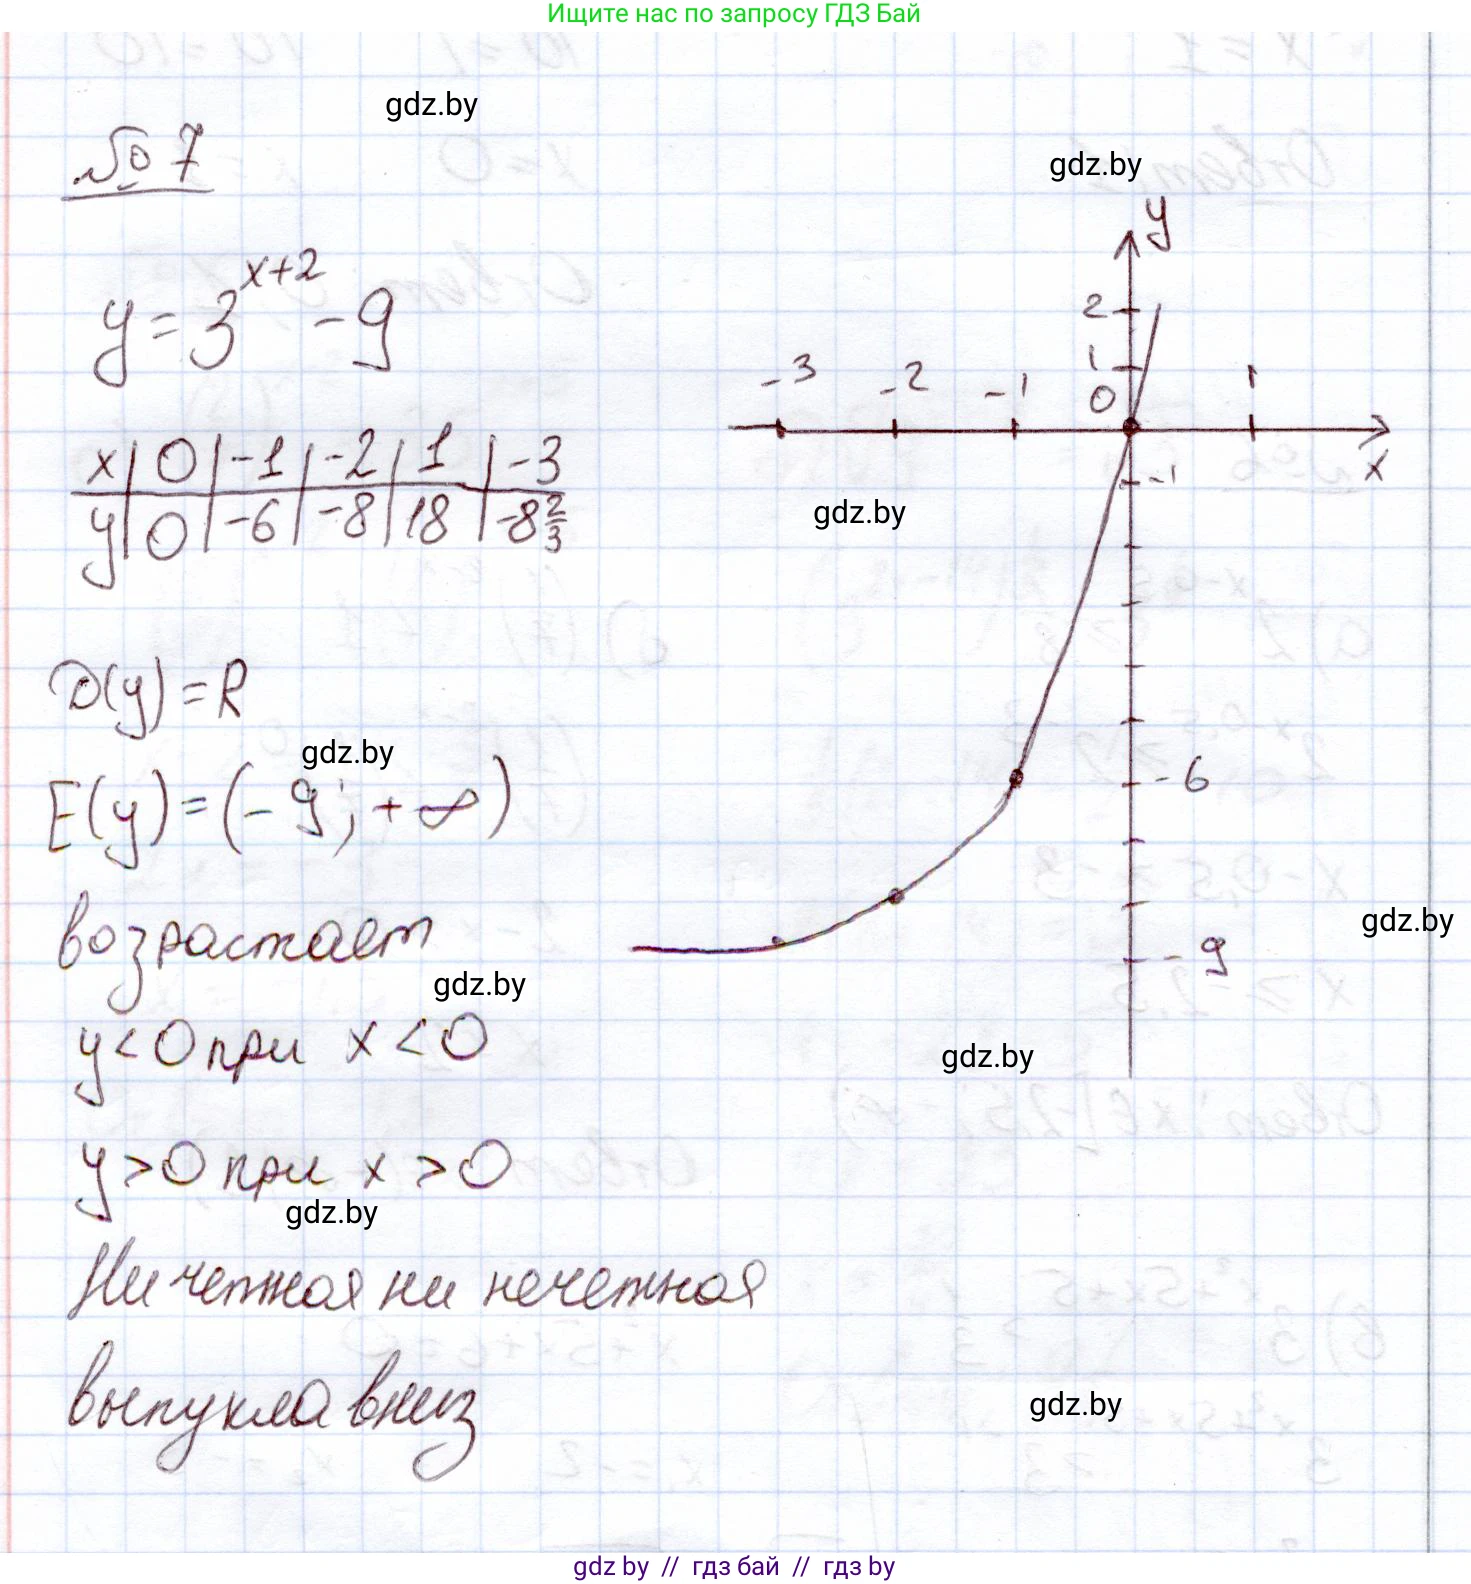 Ищите нас по запросу ГДЗ Бай
gdz.by
№ 7
gdz.by
y = 3^{x+2} - 9
x | 0 | -1 | -2 | 1 | -3
y | 0 | -6 | -8 | 18 | -8 2/3
y
2
1
0
-3 -2 -1 1
x
-1
-6
-9
gdz.by
D(y) = R
gdz.by
E(y) = (-9; +∞)
возрастает
gdz.by
gdz.by
y < 0 при x < 0
gdz.by
y > 0 при x > 0
gdz.by
Ни четная ни нечетная
выпукла вниз
gdz.by
gdz by // гдз бай // гдз by